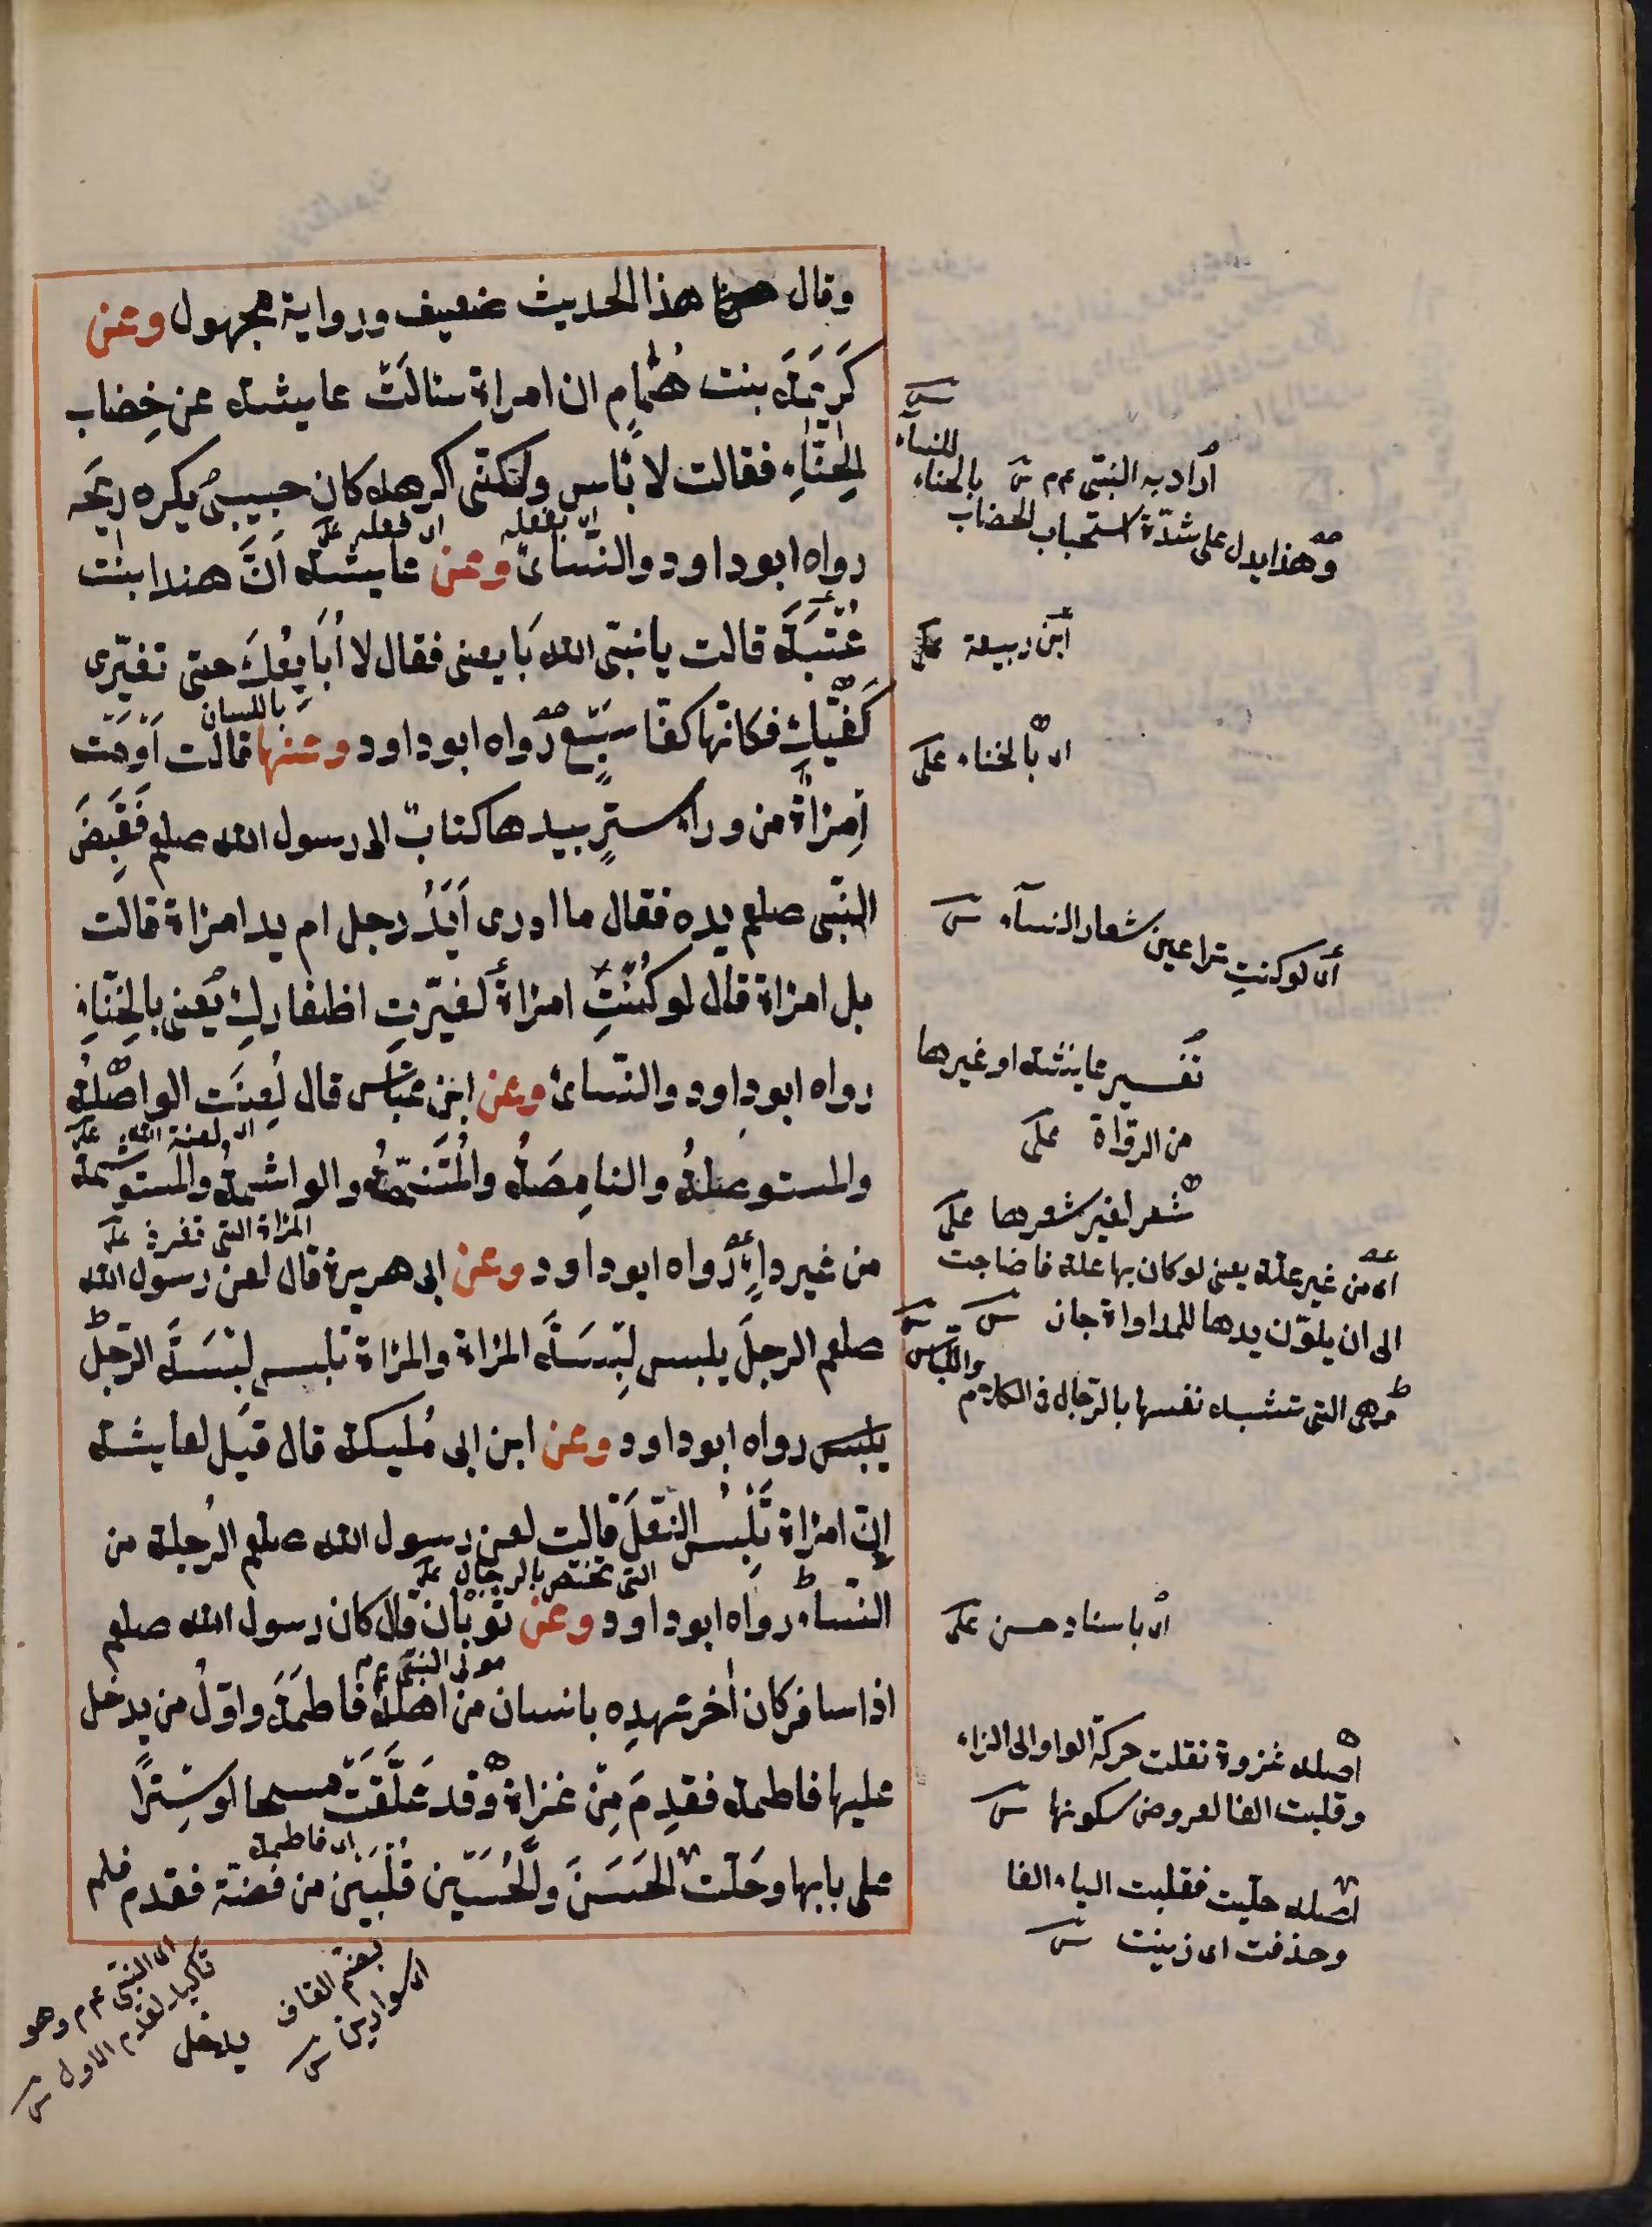 وقال هذا الحديث ضعيف ورواية مجهول وعن
كَرِيمَة بنت هُمَّامٍ ان امراة سالَتْ عايشة عن خِضاب
الحِنَّاءِ فقالت لا باس ولكنّى اكرهه كان حبيبى يكره ريحَه
ان بفعله اى فعله على
رواه ابو داود والنسائ وعن عايشة اَنَّ هندا بنت
عُتْبَةَ قالت يا نبىّ الله بَايعنى فقال لا اُبَايِعُكَ حتى تغيّرى
كَفَّيْكِ فكانّها كفّا سَبُعٍ رواه ابو داود وعنها قالت اَوْمَتْ
باللسان
اِمْرَاةٌ من وراء سترٍ بيدها كتابٌ الى رسول الله صلعم فَقَبَضَ
النبّى صلعم يده فقال ما ادرى اَيَدُ رجل ام يد امراة قالت
بل امراة قال لو كُنْتِ امراةً لغيّرتِ اظفاركِ يعنى بالحِنَّاءِ
رواه ابو داود والنّسائ وعن ابن عبّاس قال لُعِنَتِ الواصلةُ
اى لعنة الله على
والمستوصلةُ والنامِصَةُ والمُتَنَمِّصَةُ والواشمةُ والمستوشمة
من غير داءٍ رواه ابو داود وعن ابى هريرة قال لعن رسول الله
المراة التى تفرق على
صلعم الرجلَ يلبس لِبْسَةَ المراة والمراة تلبس لِبْسَةَ الرّجل
يلبس رواه ابو داود وعن ابن ابى مُليكة قال قيل لعايشة
اِنّ امراة تَلْبَسُ النّعلَ قالت لعن رسول الله صلعم الرَّجلة من
التى تختص بالرجال على
النّساء رواه ابو داود وعن ثوبان قال كان رسول الله صلعم
مولى النبى عم
اذا سافر كان اٰخر عهدِه بانسان من اهله فاطمَةَ واوّلُ من يدخل
عليها فاطمة فقدِمَ مِنْ غزاة وقد عَلَّقَتْ مسحا اوسِتْرًا
اى فاطمة
على بابها وحَلَّتْ الحَسَنَ والحُسَيْن قُلْبَيْنِ من فضّة فقدم فلم
للنساء
اراد به النبىّ عم بالحناء
وهذا يدل على شدّة استحباب الخضاب
ابن ربيعة على
اى بالحناء على
اى لو كنتِ تراعين شعار النسآء
تفسير عايشة او غيرها
من الرواة على
شعر لغير شعرها على
اى من غير علّة يعنى لو كان بها علة فاحتاجت
الى ان يلوّن يدها للمداواة جاز
واللباس
وهى التى تتشبه نفسها بالرّجال فى الكلام
اى باسناد حسن على
اصله غزوة نقلت حركة الواو الى الزاء
وقلبت الفا لعروض سكونها
اصله حلّيت فقلبت الياء الفا
وحذفت اى زينت
بضم القاف
اى سوارين
يدخل
اى النبى عم وهو
تاكيد لقدم الاول